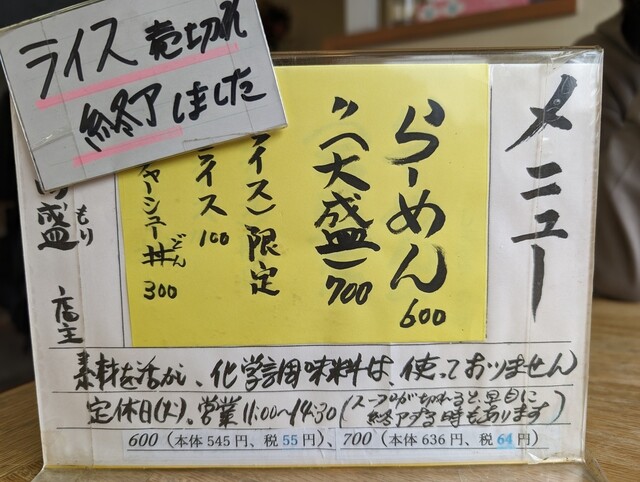 ライス売切れ
終了しました
メニュー
らーめん 600
〃(大盛) 700
イス)限定
イス 100
ャーシュー丼 どん 300
盛 もり
店主
素材を活かし、化学調味料は、使っておりません
定休日(火)、営業11:00~14:30(スープが切れると早目に
終了する時もあります)
600(本体545円、税55円)、700(本体636円、税64円)